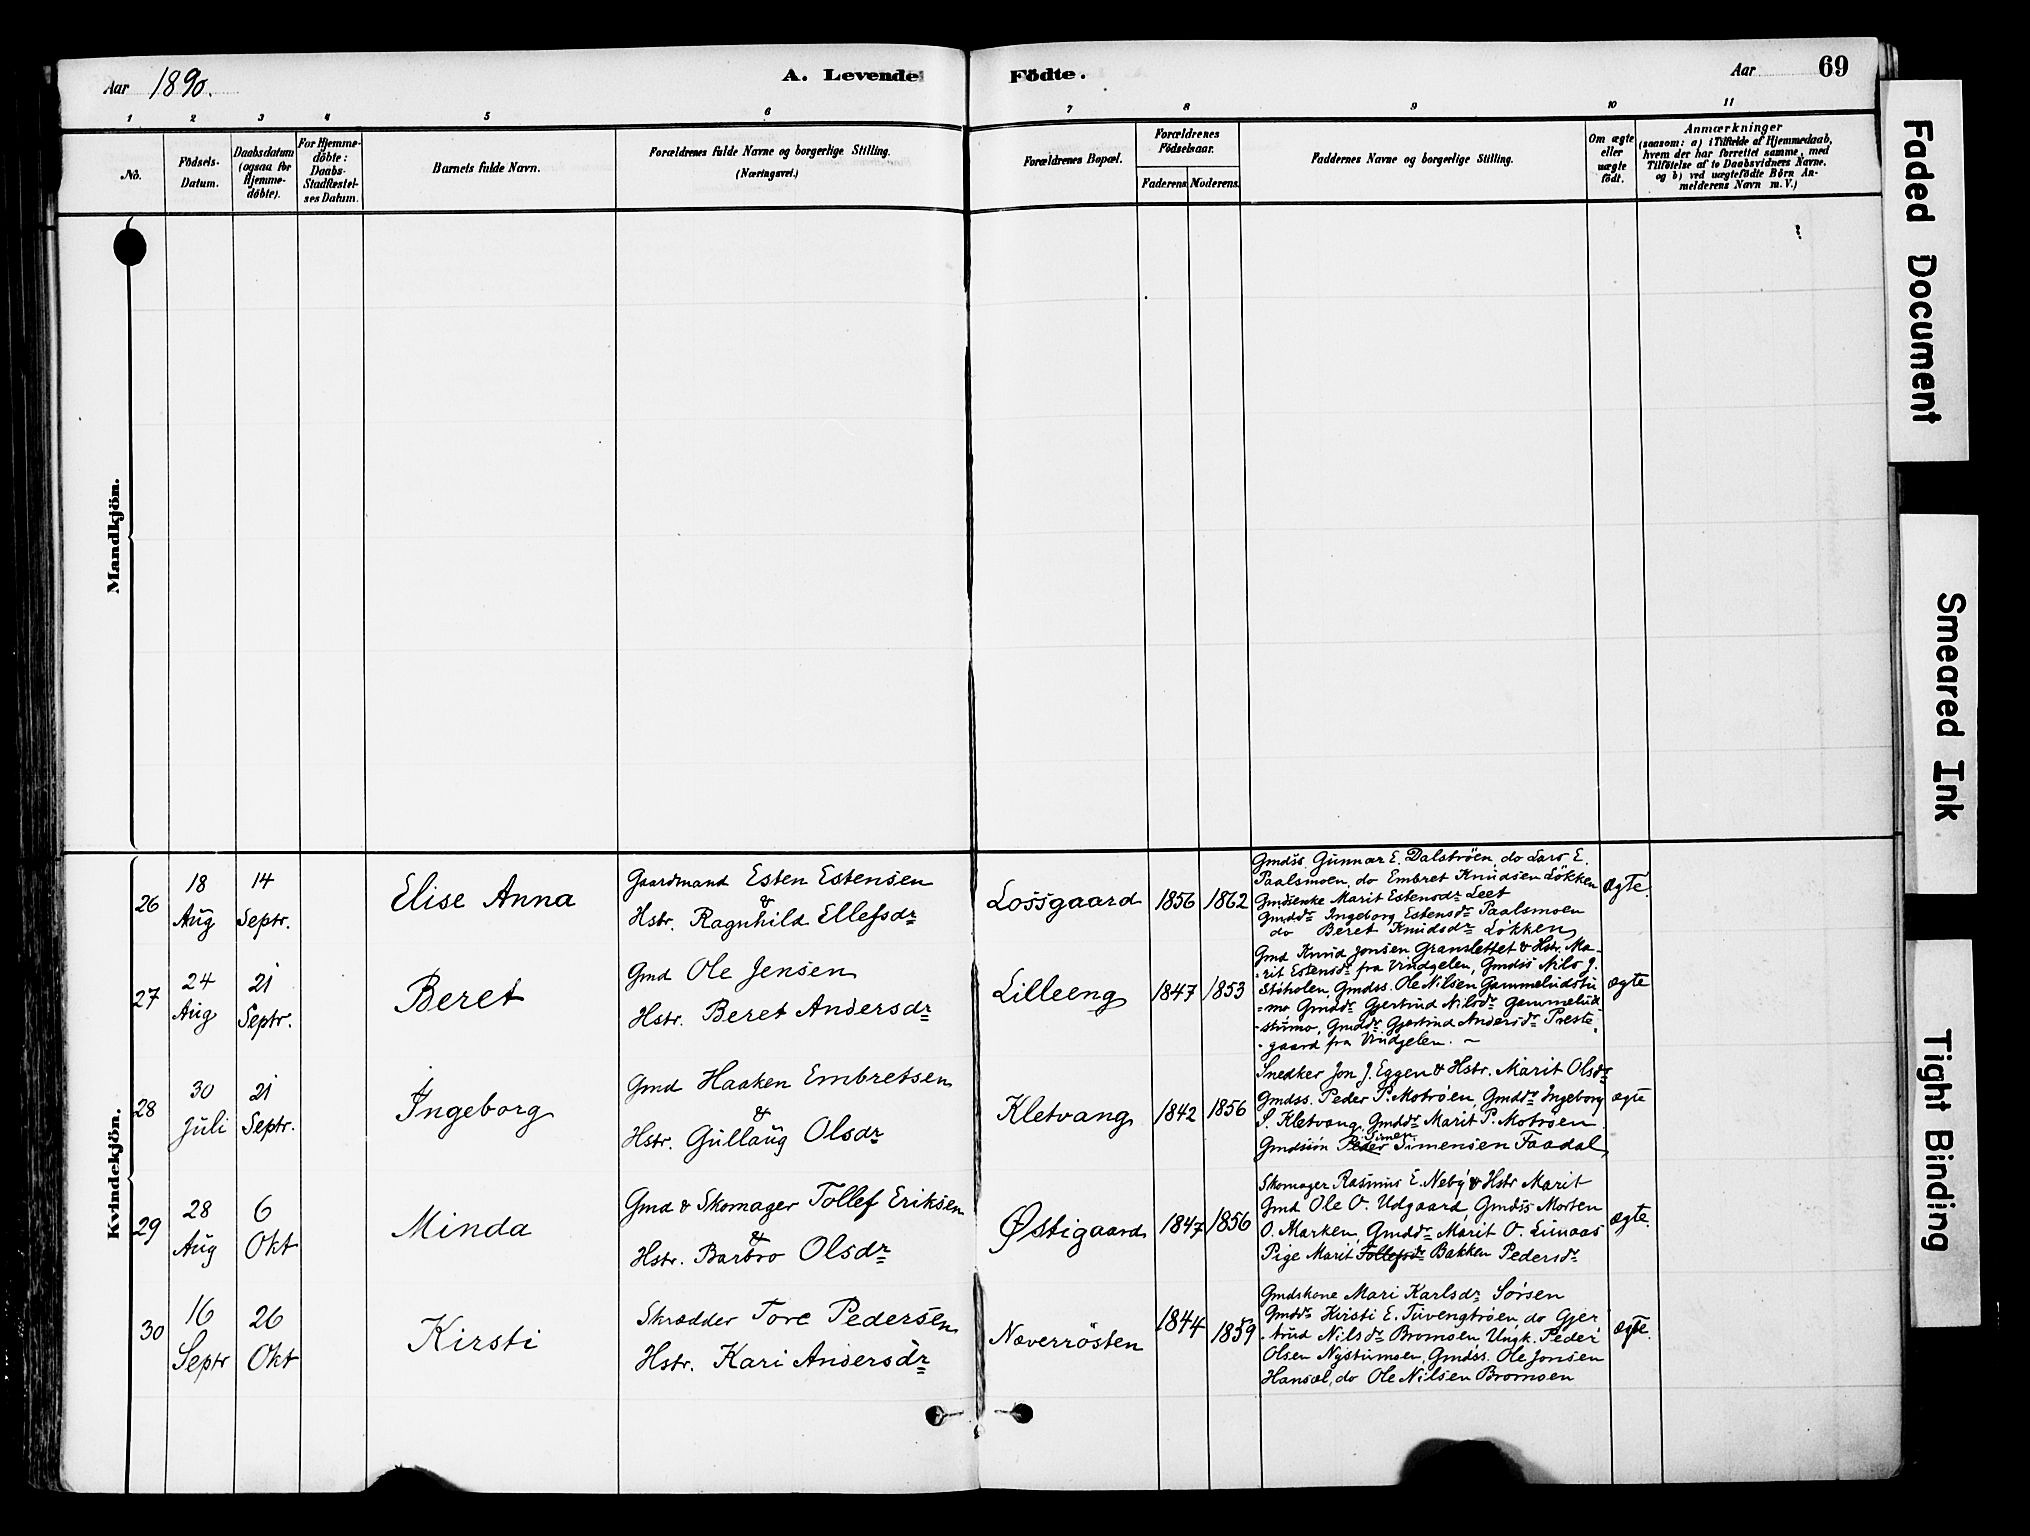 Aar 1890.
A. Levende Födte.
Aar
69
1 2 3 4 5 6 7 8 9 10 11
No.
Födsels-
Datum.
Daabsdatum
(ogsaa for
Hjemme-
döbte).
For Hjemme-
döbte:
Daabs-
Stadfæstel-
ses Datum.
Barnets fulde Navn.
Forældrenes fulde Navne og borgerlige Stilling.
(Næringsvei.)
Forældrenes Bopæl.
Forældrenes
Födselsaar.
Faderens. Moderens.
Faddernes Navne og borgerlige Stilling.
Om ægte
eller
uægte
födt.
Anmærkninger
(saasom: a) i Tilfælde af Hjemmedaab,
hvem der har forrettet samme, med
Tilföielse af to Daabsvidners Navne,
og b) ved uægtefödte Börn An-
melderens Navn m. V.)
Mandkjön.
Kvindekjön.
26
18
Aug
14
Septr.
Elise Anna
Gaardmand Esten Estensen
&
Hstr. Ragnhild Ellefsdr
Lossgaard
1856
1862
Gmdss. Gunnar E. Dalströen, do Lars E.
Paalsmoen, do Embret Knudsen Løkken
Gmdenke Marit Estensdr Leet
Gmddr Ingeborg Estensdr Paalsmoen
do Beret Knudsdr Løkken
ægte.
27
24
Aug
21
Septr.
Beret
Gmd Ole Jensen
Hstr. Beret Andersdr
Lilleeng
1847
1853
Gmd Knud Jonsen Granslettet & Hstr. Ma-
-rit Estensdr fra Vindgelen, Gmdss Nils J.
Stiholen Gmdss. Ole Nilsen Gammeludstu
-mo Gmddr Gjertrud Nilsdr Gammelud
-stumo, Gmddr Gjertrud Andersdr Preste-
-gaard fra Vindgelen. ~
ægte
28
30
Juli
21
Septr.
Ingeborg
Gmd Haaken Embretsen
&
Hstr. Gullaug Olsdr
Kletvang
1842
1856
Snedker Jon J. Eggen & Hstr. Marit Olsdr
Gmdss. Peder P. Motrøen, Gmddr Ingeborg
S. Kletvang, Gmddr Marit P. Motrøen
Simen
Gmdsøn Peder Simensen Faadal,
ægte
29
28
Aug
6
Okt
Minda
Gmd & Skomager Tollef Eriksen
&
Hstr. Barbro Olsdr
Østigaard
1847
1856
Skomager Rasmus E. Neby & Hstr Marit
Gmd Ole O. Udgaard, Gmdss Morten
O. Marken, Gmddr Marit O. Limaas
Pige Marit Tollefsdr Bakken Pedersdr
ægte.
30
16
Septr
26
Okt
Kirsti
Skrædder Tore Pedersen
Hstr. Kari Andersdr
Næverrösten
1844
1859
Gmdskone Mari Karlsdr Sørsen
Gmddr Kirsti E. Tuvengtrøen, do Gjer
-trud Nilsdr Bromoen Ungk. Peder
Olsen Nystumoen, Gmdss. Ole Jonsen
Hansæl, do Ole Nilsen Bromoen
ægte.
Faded Document
Smeared Ink
Tight Binding